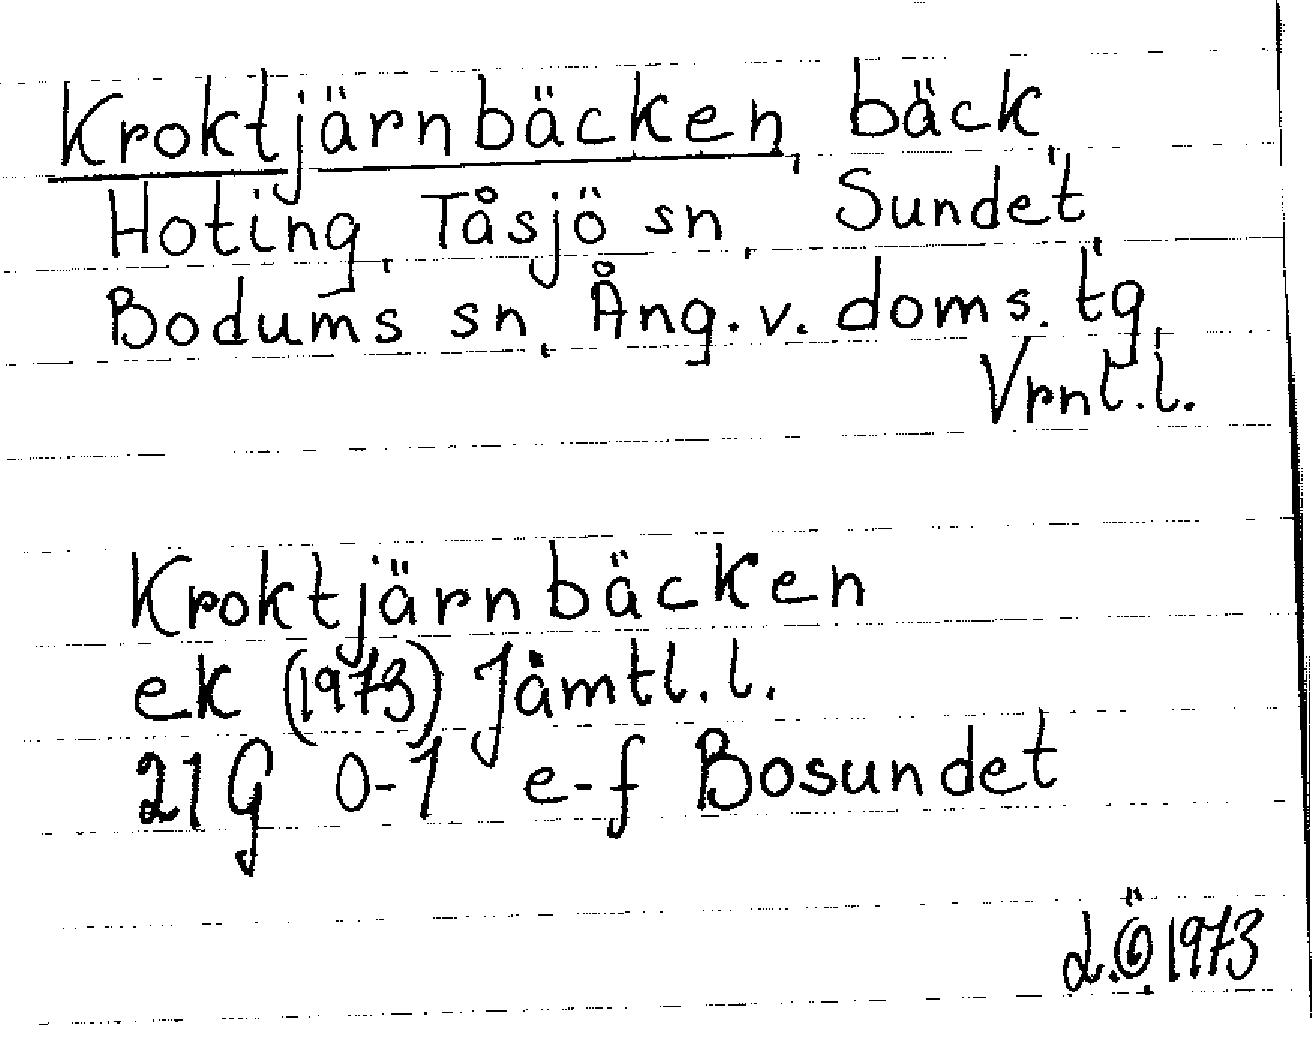 Kroktjärnbäcken, bäck,
Hoting, Tåsjö sn, Sundet,
Bodums sn, Ång. v. doms. tg,
Vrnl.l.
Kroktjärnbäcken
ek (1973) Jämtl.l.
21G 0-1 e-f Bosundet
L.Ö. 1973